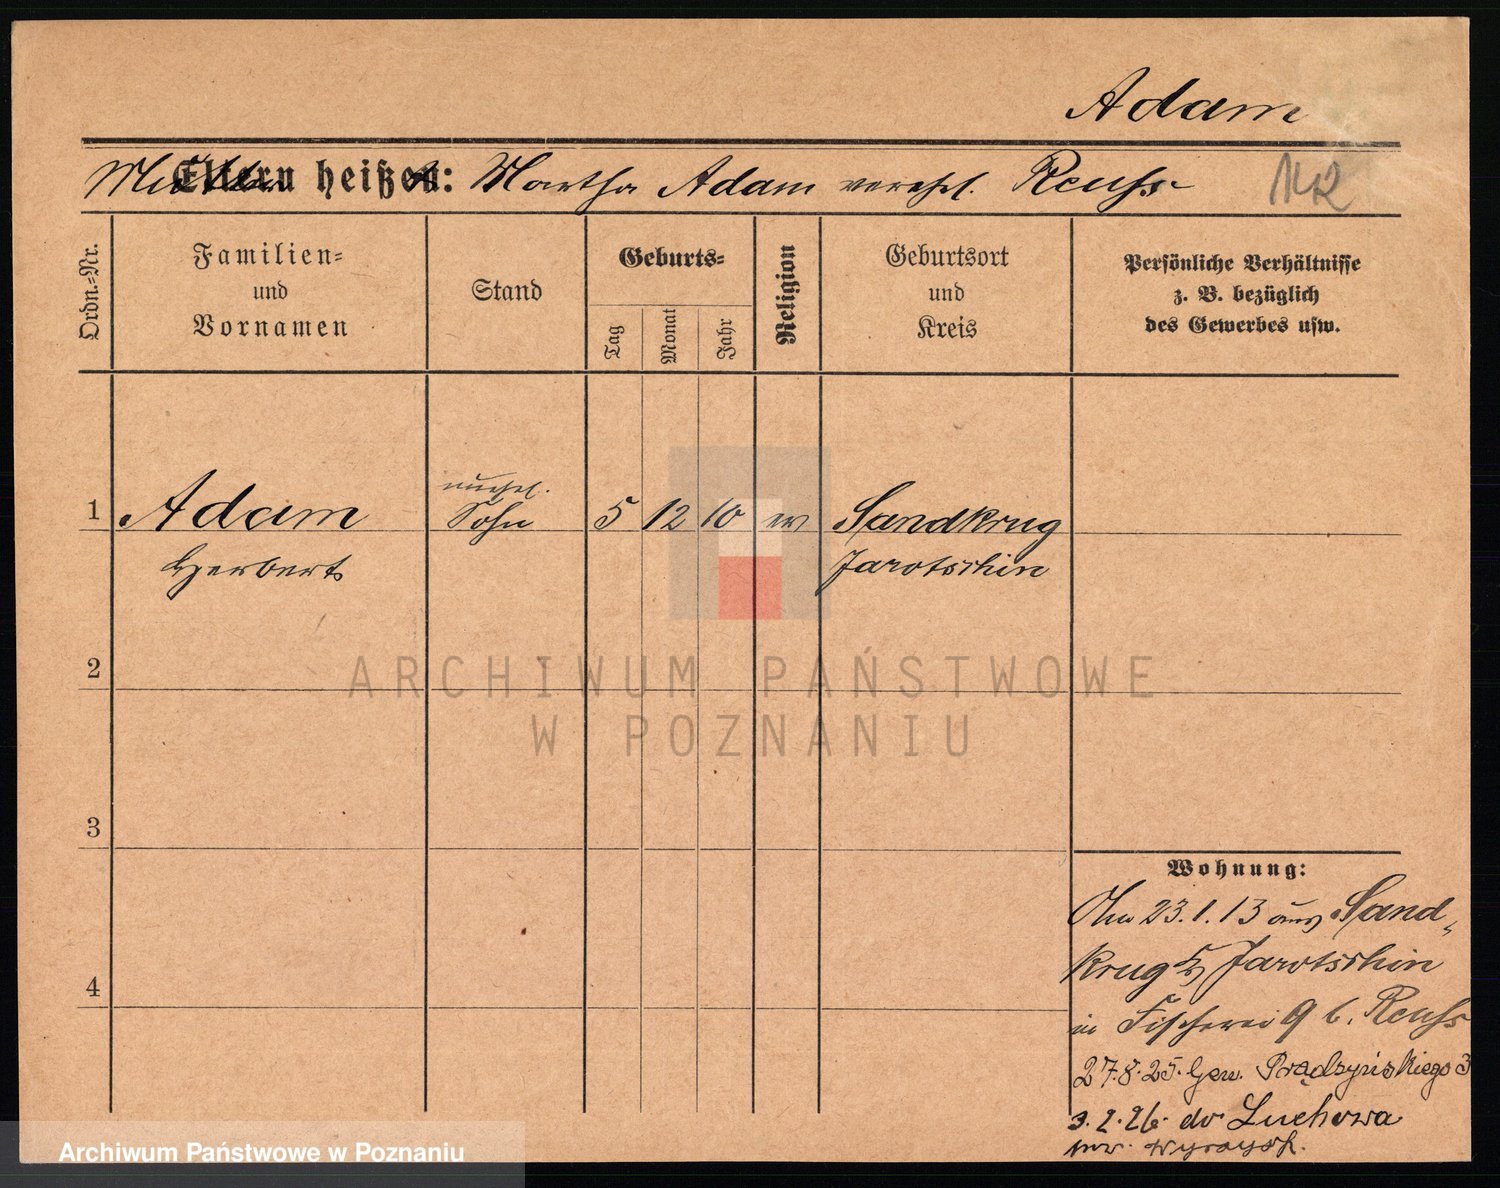 Adam
Mutter heißt: Martha Adam verehl. Reuß
Ordn.-Nr.
Familien- und Vornamen
Stand
Geburts-
Tag
Monat
Jahr
Religion
Geburtsort und Kreis
Persönliche Verhältnisse
z. B. bezüglich
des Gewerbes usw.
unehel.
1 Adam Sohn 5 12 10 ev Sandkrug
Herbert Jarotschin
2
3
4
Wohnung:
23.1.13 aus Sand„
krug Jarotschin
in Fischerei 9 b. Reuß
27.8.25. Gen. Prądzyńskiego 3
3.2.26. do Luchowa
pow. Wyrzysk.
ARCHIWUM PAŃSTWOWE
W POZNANIU
Archiwum Państwowe w Poznaniu